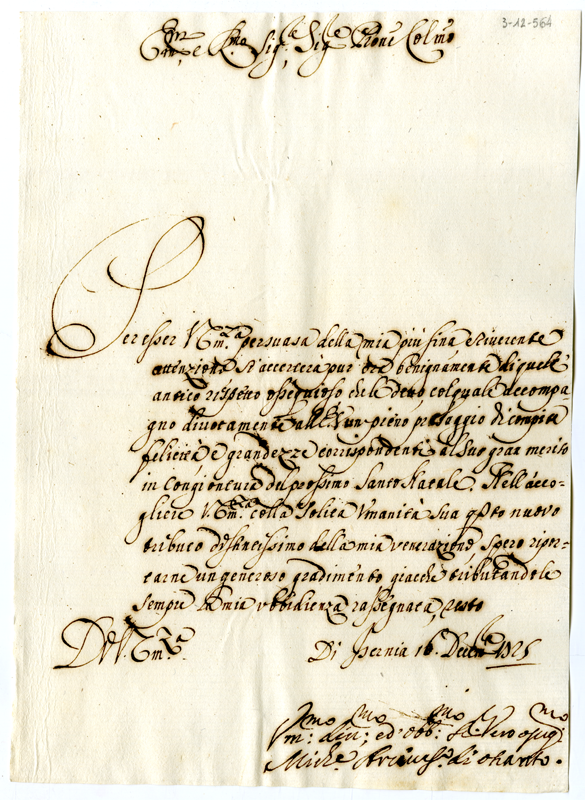 3-12-564
Em.mo e R.mo Sig.r Sig.r P.rone Col.mo
Per esser V. Em.za persuasa della mia più fina e riverente
attenzione s'accerterà pur ora benignamente di quell'
antico rispetto ossequioso che le devo col quale accompa-
gno divotamente all'E.V. un pieno presaggio di compita
felicità e grandezze corrispondenti al suo gran merito
in congiontura del prossimo Santo Natale. Nell'acco-
glier V. Em.za colla solita Umanità sua q.sto nuovo
tributo distintissimo della mia venerazione spero ripor-
tarne un generoso gradimento giacchè tributandole
sempre la mia ubbidienza rassegnata, resto
D. V. Em.za
Di Isernia 16 Decem.e 1725
Um.mo div.mo ed obb.mo Se. Vero osseq.mo
Mich.e Arcives.o di Otranto.